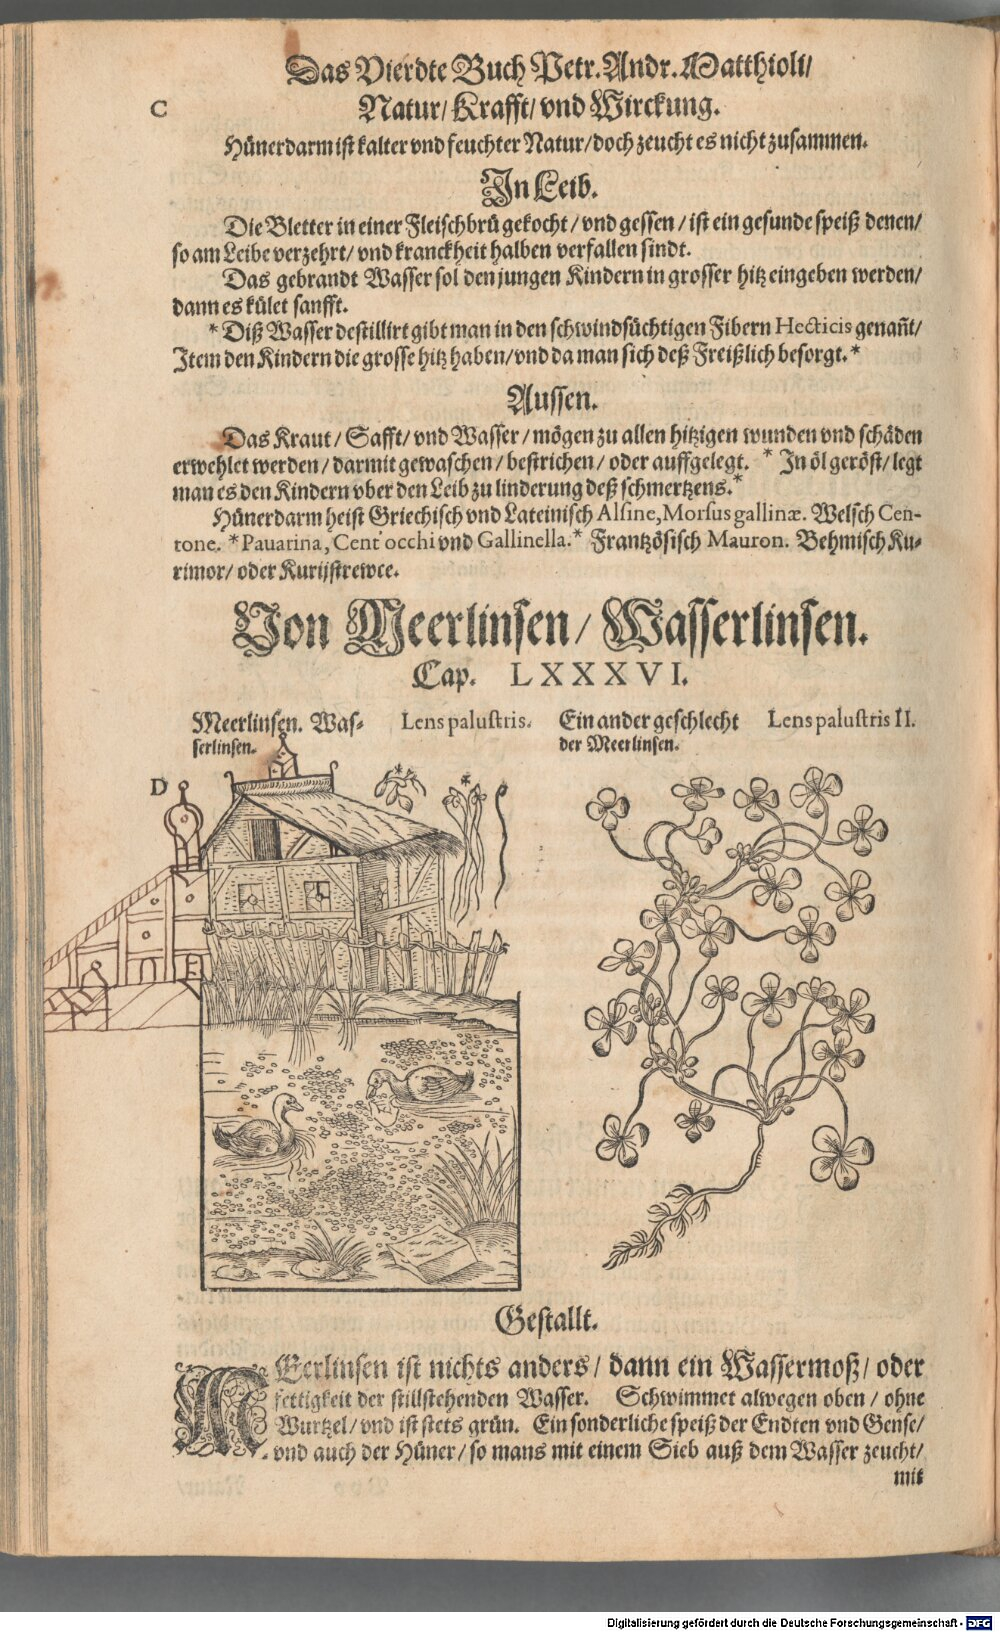 Das Vierdte Buch Petr. Andr. Matthioli/
C
Natur/ Krafft/ vnd Wirckung.
Hünerdarm ist kalter vnd feuchter Natur/ doch zeucht es nicht zusammen.
In Leib.
Die Bletter in einer Fleischbrü gekocht/ vnd gessen/ ist ein gesunde speiß denen/
so am Leibe verzehrt/ vnd kranckheit halben verfallen sindt.
Das gebrandt Wasser sol den jungen Kindern in grosser hitz eingeben werden/
dann es kület sanfft.
* Diß Wasser destillirt gibt man in den schwindsüchtigen Fibern Hecticis genañt/
Item den Kindern die grosse hitz haben/ vnd da man sich deß Freißlich besorgt.*
Aussen.
Das Kraut/ Safft/ vnd Wasser/ mögen zu allen hitzigen wunden vnd schäden
erwehlet werden/ darmit gewaschen/ bestrichen/ oder auffgelegt. * In öl geröst/ legt
man es den Kindern vber den Leib zu linderung deß schmertzens.*
Hünerdarm heist Griechisch vnd Lateinisch Alsine, Morsus gallinæ. Welsch Cen-
tone. * Pauarina, Cent'occhi vnd Gallinella.* Frantzösisch Mauron. Behmisch Ku-
rimor/ oder Kurijstrewce.
Von Meerlinsen/ Wasserlinsen.
Cap. LXXXVI.
Meerlinsen. Was-
serlinsen.
Lens palustris.
Ein ander geschlecht
der Meerlinsen.
Lens palustris II.
D
Gestallt.
Meerlinsen ist nichts anders/ dann ein Wassermoß/ oder
fettigkeit der stillstehenden Wasser. Schwimmet alwegen oben/ ohne
Wurtzel/ vnd ist stets grün. Ein sonderliche speiß der Endten vnd Gense/
vnd auch der Hüner/ so mans mit einem Sieb auß dem Wasser zeucht/
mit
Digitalisierung gefördert durch die Deutsche Forschungsgemeinschaft - DFG